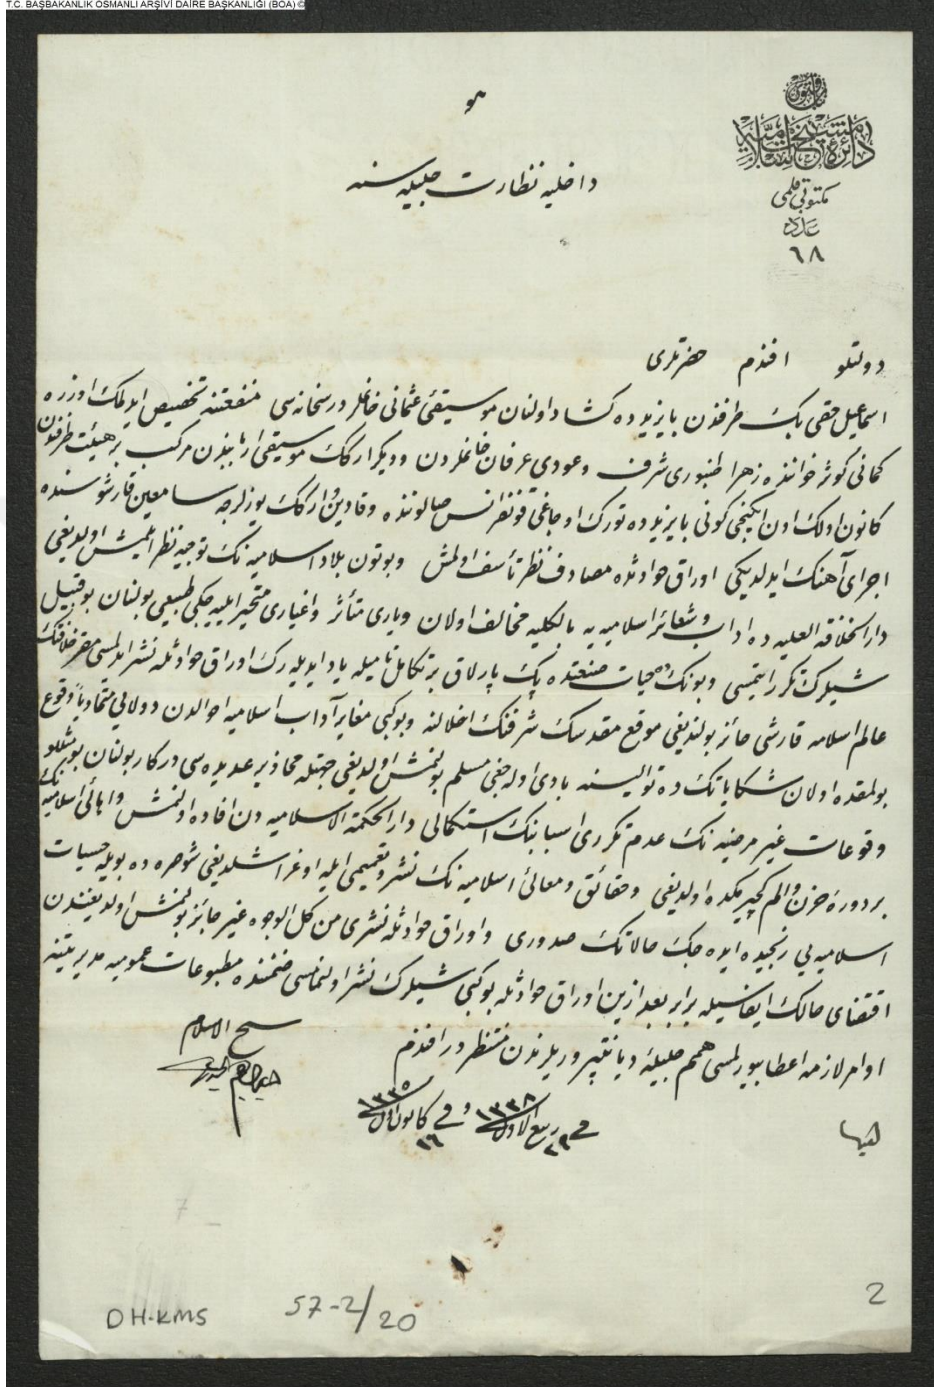 T.C. BAŞBAKANLIK OSMANLI ARŞİVİ DAİRE BAŞKANLIĞI (BOA) ©
باب فتوی
دائرهٔ مشیخت اسلامیه
مکتوبی قلمی
عدد
٦٨
هو
داخلیه نظارت جلیله‌سنه
دولتلو افندم حضرتلری
اسماعیل حقی بك طرفندن بایزیدده کشاد اولنان موسیقئ عثمانی خانملر درسخانه‌سی منفعتنه تخصیص ایدلمك اوزره
کمانی کوثر خواننده زهرا طنبوری شرف وعودی عرفان خانملردن ودیکر ارکك موسیقی اربابندن مرکب بر هیئت طرفندن
کانون اولك اون ایکنجی کونی بایزیدده تورك اوجاغی قونفرانس صالوننده وقادین وارکك یوزلرجه سامعین قارشوسنده
اجرای آهنك ایدلدیکی اوراق حوادثده مصادف نظر تأسف اولمش وبوتون بلاد اسلامیه‌نك توجیه نظر ایتمش اولدیغی
دار الخلافة العلیه‌ده اداب وشعائر اسلامیه‌یه بالکلیه مخالف اولان ویاری متأثر واغیاری متحیر ایلیه‌جکی طبیعی بولنان بوقبیل
شیلرك تکرر ایتمسی وبونك حیات صنعتده پك پارلاق بر تکامل نامیله یاد ایدیله‌رك اوراق حوادثله نشر ایدلمسی مقر خلافتك
عالم اسلامه قارشی حائز بولندیغی موقع مقدسك شرفنك اخلالنه وبوکبی مغایر آداب اسلامیه احوالدن دولایی متمادیاً وقوع
بولمقده اولان شکایاتك ده توالیسنه بادی اوله‌جغی مسلم بولنمش اولدیغی جهتله محاذیر عدیده‌سی درکار بولنان بومثللو
وقوعات غیر مرضیه‌نك عدم تکرری اسبابنك استکمالی دار الحکمة الاسلامیه‌دن افاده اولنمش واهالئ اسلامیه‌نك
بر دورهٔ حزن والم کچیرمکده اولدیغی وحقائق ومعالئ اسلامیه‌نك نشر وتعمیمی ایله اوغراشلدیغی شو صره‌ده بویله حسیات
اسلامیه‌یی رنجیده ایده‌جك حالاتك صدوری واوراق حوادثله نشری من کل الوجوه غیر جائز بولنمش اولدیغندن
اقتضای حالك ایفاسیله برابر بعد ازین اوراق حوادثله بوکبی شیلرك نشر اولنمامسی ضمننده مطبوعات عمومیه مدیریتنه
اوامر لازمه اعطا بیورلمسی همم جلیلهٔ دیانتپروریلرندن منتظردر افندم
فی ٢٩ ربیع الاول ١٣٣٨ وفی ٢٦ کانون اول ١٣٣٥
شیخ الاسلام
ابراهیم الحیدری
7
DH-KMS
57-2/20
2